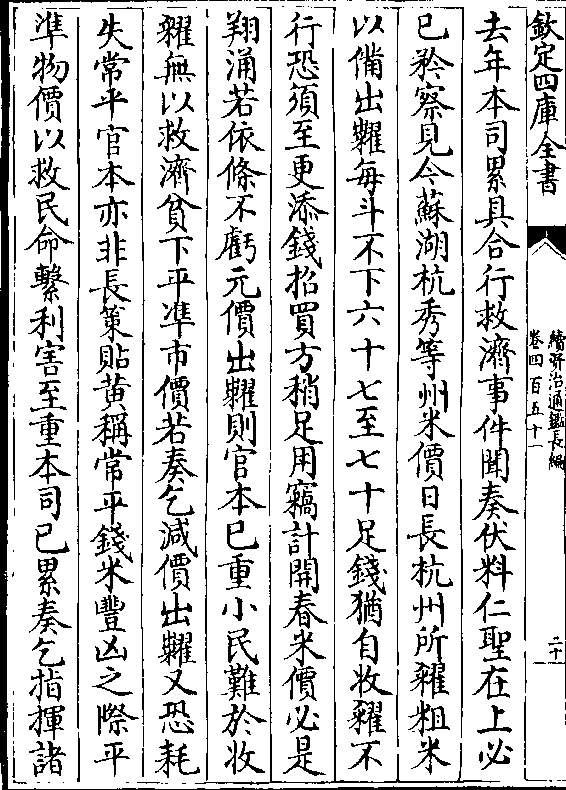 欽定四庫全書
續資治通鑑長編
卷四百五十一
二十
去年本司累具合行救濟事件聞奏伏料仁聖在上必
已矜察見今蘇湖杭秀等州米價日長杭州所糴粗米
以備出糶每斗不下六十七至七十足錢猶自收糴不
行恐須至更添錢招買方稍足用竊計開春米價必是
翔涌若依條不虧元價出糶則官本已重小民難於收
糴無以救濟貧下平準市價若奏乞減價出糶又恐耗
失常平官本亦非長策貼黄稱常平錢米豐凶之際平
準物價以救民命繫利害至重本司已累奏乞指揮諸